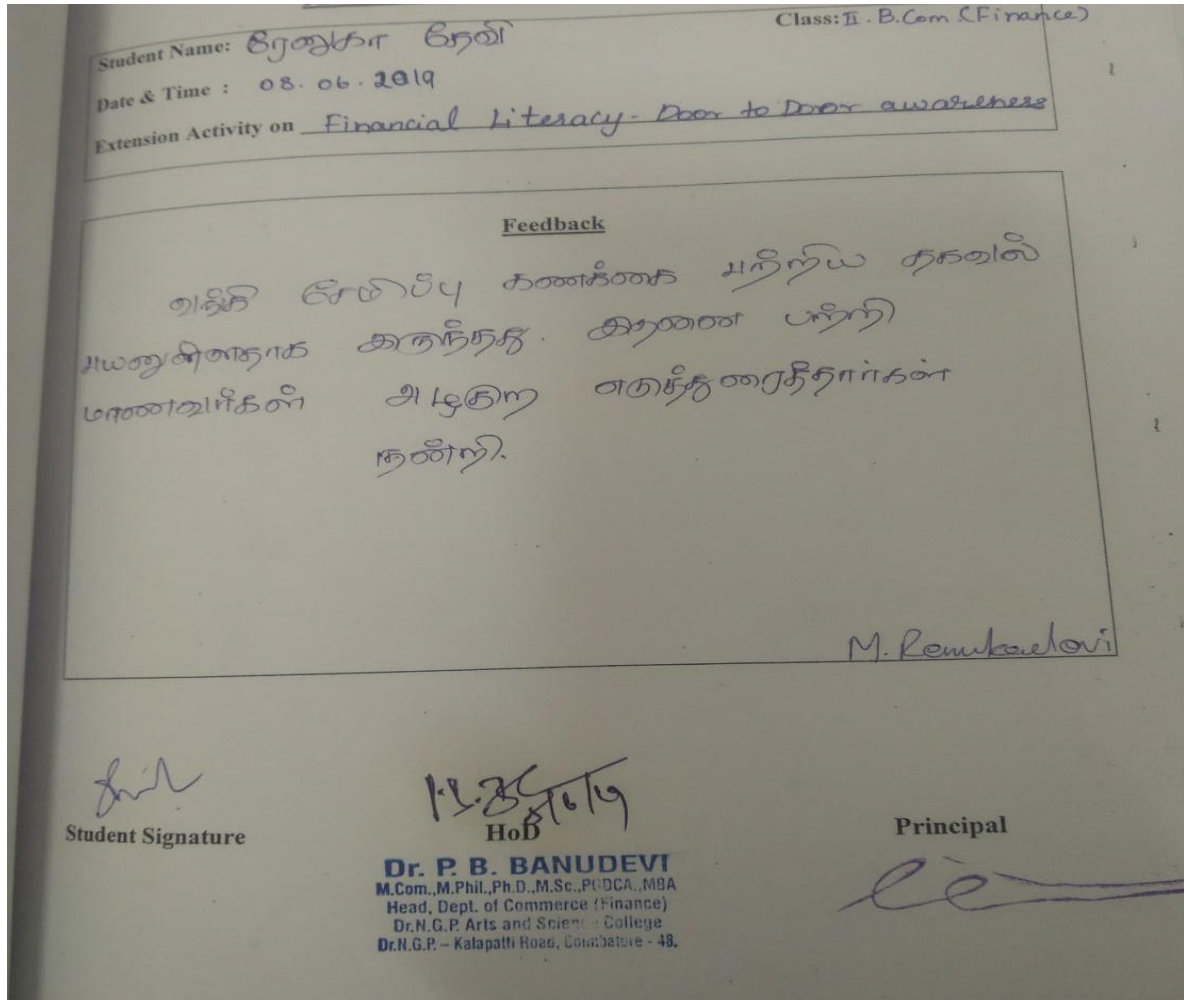 Class: II . B.Com (Finance)
Student Name: ரேனுகா தேவி
Date & Time : 08.06.2019
Extension Activity on Financial Literacy - Door to Door awareness
Feedback
வங்கி சேமிப்பு கணக்கை பற்றிய தகவல்
பயனுள்ளதாக இருந்தது. இதனை பற்றி
மாணவர்கள் அழகுற எடுத்துரைத்தார்கள்
நன்றி.
M. Renukadevi
Student Signature
HoD
Principal
Dr. P. B. BANUDEVI
M.Com.,M.Phil.,Ph.D.,M.Sc.,PGDCA.,MBA
Head, Dept. of Commerce (Finance)
Dr.N.G.P. Arts and Science College
Dr.N.G.P. – Kalapatti Road, Coimbatore - 48.